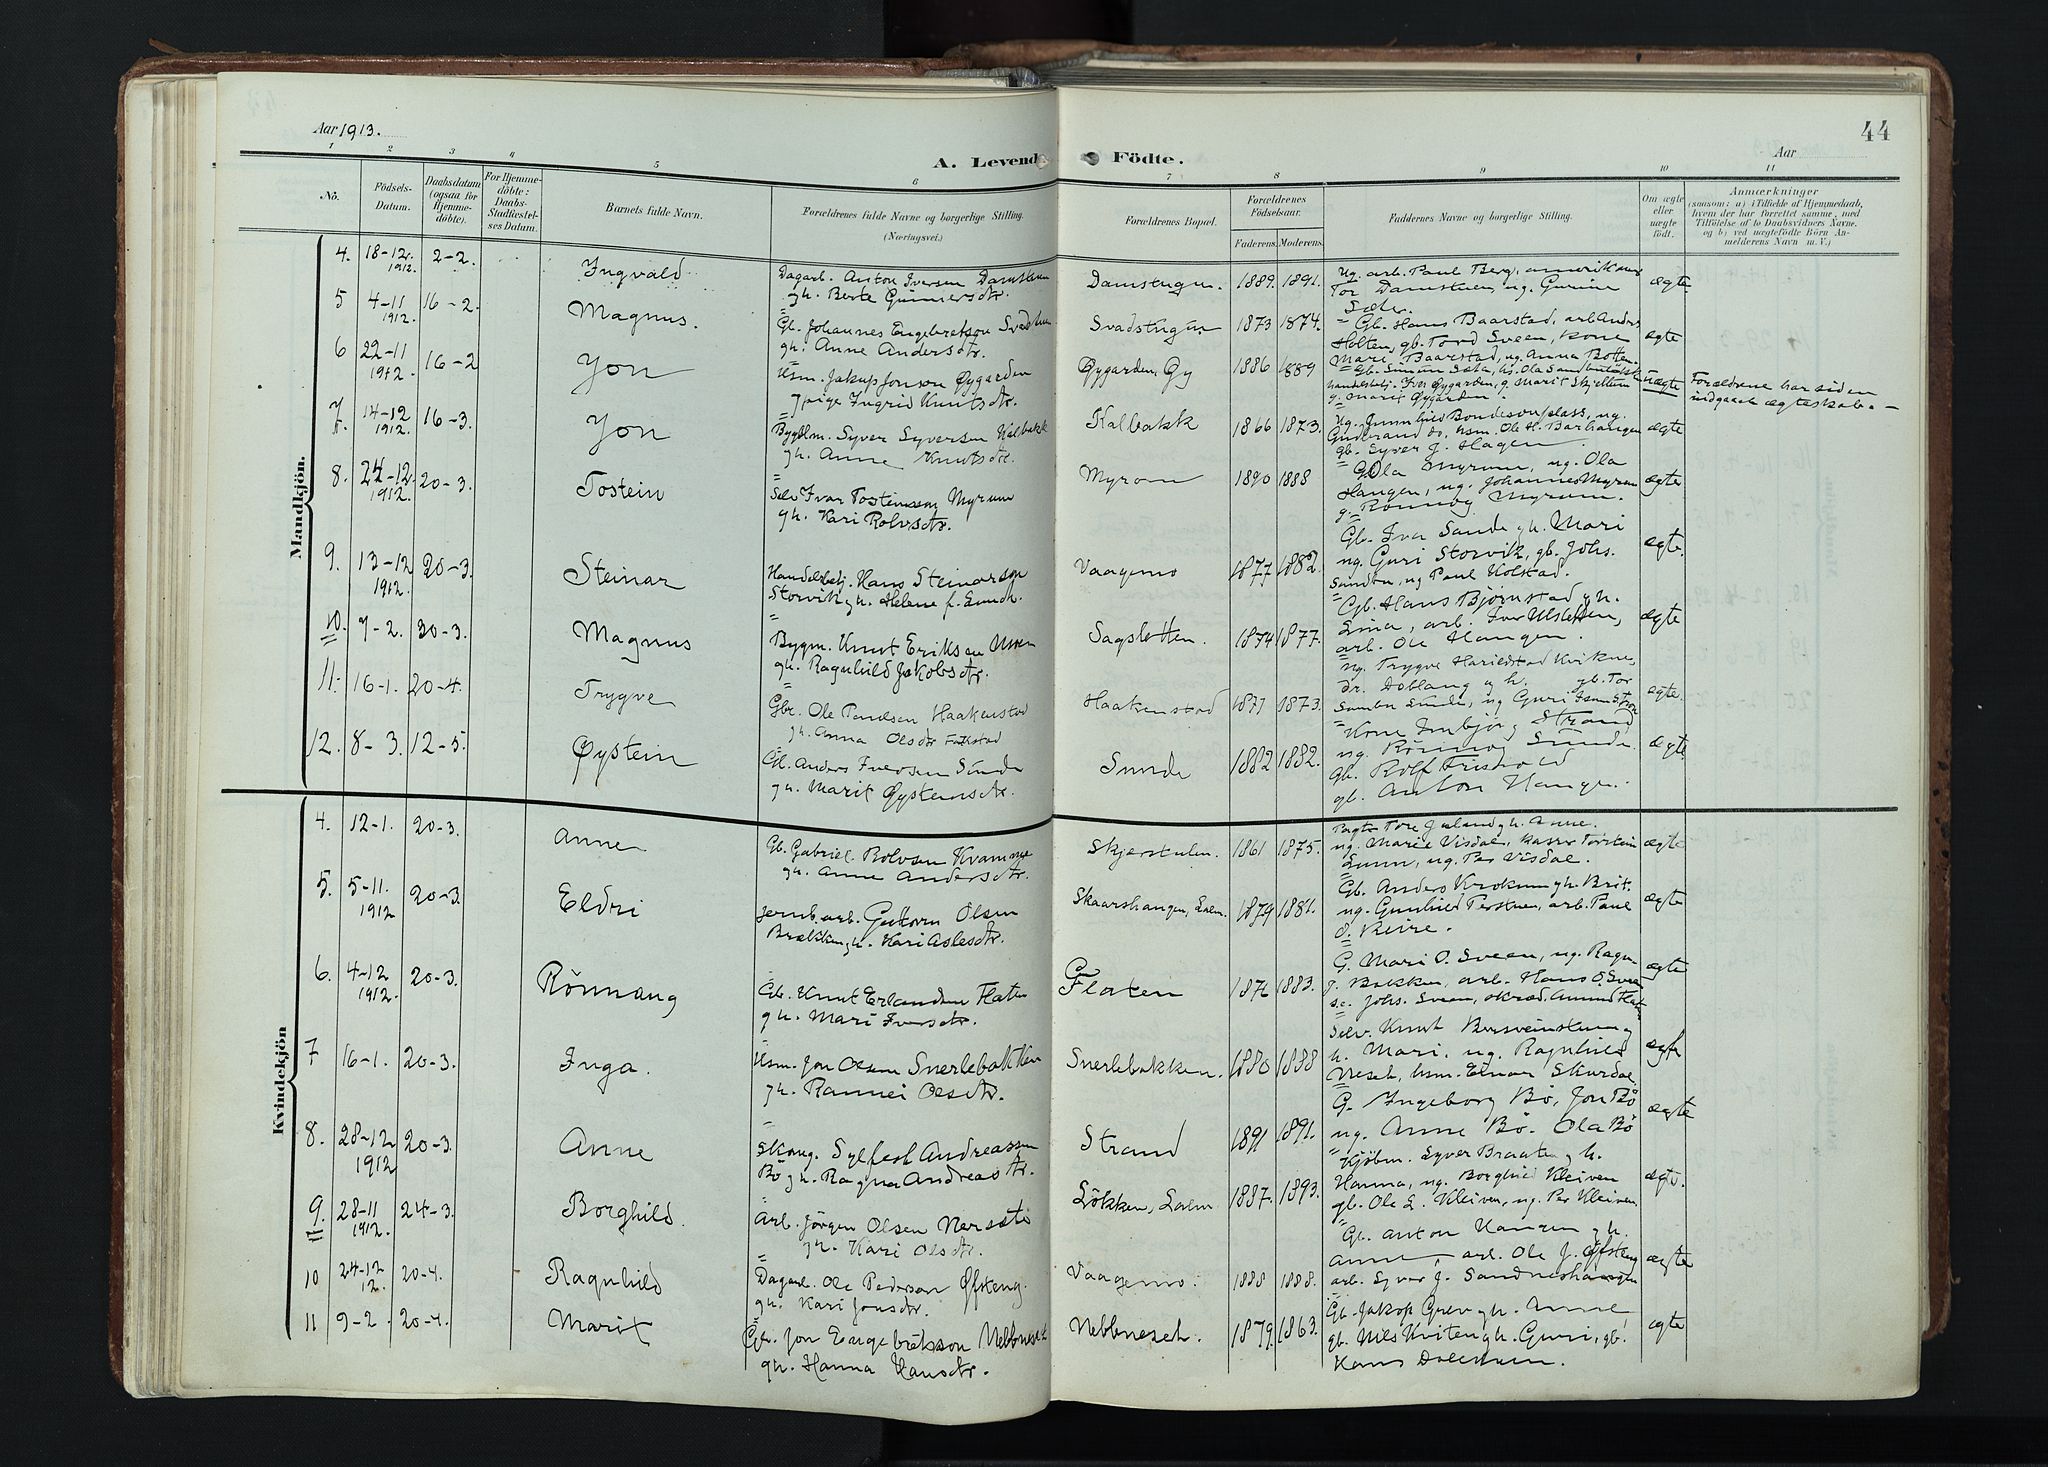 Aar 1913.
44
A. Levend
Födte.
Aar
1 2 3 4 5 6 7 8 9 10 11
No.
Födsels-
Datum.
Daabsdatum
(ogsaa for
Hjemme-
döbte).
For Hjemme-
döbte:
Daabs-
Stadfæstel-
ses Datum.
Barnets fulde Navn.
Forældrenes fulde Navne og borgerlige Stilling.
(Næringsvei.)
Forældrenes Bopæl.
Forældrenes
Födselsaar.
Faderens. Moderens.
Faddernes Navne og borgerlige Stilling.
Om ægte
eller
uægte
födt.
Anmærkninger
(saasom: a) i Tilfælde af Hjemmedaab,
hvem der har forrettet samme, med
Tilföielse af to Daabsvidners Navne,
og b) ved uægtefödte Börn An-
melderens Navn m. V.)
Mandkjön.
4. 18-12. 1912. 2-2. Ingvald
Dagarb. Anton Iversen Damstuen
gh. Berte Gunnersdtr.
Damstugun. 1889. 1891.
Ug. arb. Paul Berg, amerikaner
Tor Damstuen, ug. Gurine
Sæter.
ægte.
5 4-11 1912. 16-2. Magnus.
Gb. Johannes Engebretson Svadstuen
gh. Anne Andersdtr.
Svadstugun 1873 1874.
Gb. Hans Baarstad, arb. Anders
Holten, gb. Tord Sveen, kone
Mari Baarstad, ug. Anna Botten.
ægte
6 22-11 1912. 16-2 Jon
Hsm. Jakup Jonson Øygarden
pige Ingrid Knutsdtr.
Øygarden, Gy 1886 1889
Gb. Simun Sæta, ug. Ola
handelsbetj. Iver Øygarden, g. Marit Skjellum
g. Marit Øygarden.
uægte
Forældrene har siden
indgaaet ægteskab. -
7. 14-12 1912. 16-3. Jon
Bygslm. Syver Syversen Kalbakk
gh. Anne Knutsdtr.
Kalbakk 1866 1873.
Gudbrand do, hsm. Ole H. Barhaugen
gb. Syver J. Hagen.
ægte
8. 24-12 1912. 20-3. Tostein
Selv. Ivar Tosteinsson Myrum
gh. Kari Rolvsdtr.
Myrom 1890 1888
G. Ola Myrum, ug. Ola
Haugen, ug. Johannes Myrum
g. Rönnog Myrum.
ægte
9. 13-12 1912. 20-3. Steinar
Handelsbetj. Hans Steinarson
Storvik gh. Helene f. Sunde.
Vaagemo 1877 1882.
Gb. Iver Sande gh. Mari
ug. Guri Storvik, gb. Johs.
Sandbu, ug Paul Kolstad.
ægte.
10. 7-2. 30-3. Magnus
Bygm. Knut Eriksen Moen
gh. Ragnhild Jakobsdtr.
Sagsletten. 1874 1877.
Gb. Hans Bjørnstad gh.
Lina, arb. Iver Ulsletten,
arb. Ole Haugen.
ægte
11. 16-1. 20-4. Trygve
Gbr. Ole Paulsen Haakenstad
gh. Anna Olsdtr Falkstad
Haakenstad 1877 1873.
ug. Trygve Harildstad Kvikne,
dr. Doblaug gh. gb. Tor
Sandbu Sunde, ug Guri
ægte.
12. 8-3. 12-5. Øystein
Gb. Anders Iversen Sunde
gh. Marit Øysteinsdtr.
Sunde 1882 1882.
Kone Imbjør g Strand
ug. Rönnog Sunde.
gb. Rolf Frisvold
gb. Anton Haugen.
ægte
Kvindekjön
4. 12-1. 20-3. Anne
Gb. Gabriel Rolvsen Kvamme
gh. Anne Andersdtr.
Skjerstulen. 1861 1875.
ug. Marie Visdal, kasser Torstein
Lunn, ug. Per Visdal.
ægte
5. 5-11. 1912 20-3. Eldri
Jernb. arb. Guttorm Olsen
Brækken gh. Kari Aslesdtr.
Skaarshaugen, Lalm. 1879 1881.
Gb. Anders Krokum gh. Brit.
ug. Gunhild Perstuen, arb. Paul
ægte
6. 4-12 1912. 20-3. Rönnaug
Gb. Knut Erlandsen Flaten
gh. Mari Iversdtr.
Flaten 1876 1883.
G. Mari O. Sveen, ug. Ragn-
Bakken, arb. Hans O. Sveen
s.c. Johs. Sveen, skræd. Amund Flaten
ægte
7 16-1. 20-3. Inga.
Hsm. Jon Olsen Snerlebakken
gh. Rannei Olsdtr.
Snerlebakken. 1880 1888
Selv. Knut Bersveinstuen g
h. Mari, ug. Ragnhild
Nesch, hsm. Einar Skurdal
ægte
8. 28-12 1912 20-3. Anne
Skomg. Sylfest Andreassen
Bø gh. Ragna Andreasdtr.
Strand 1891 1891.
G. Ingeborg Bø, Jon Bø
ug. Anne Bø. Ola Bø
ægte
9. 28-11 1912. 24-3. Borghild.
Arb. Jörgen Olsen Nersæte
gh. Kari Olsdtr.
Lökken, Lalm. 1887. 1893.
Kjøbm. Syver Braaten gh.
Hanna, ug. Borghild Kleiven
gb. Ole L. Kleiven, ug. Per Kleiven
ægte.
10 24-12 12. 20-4. Ragnhild
Dagarb. Ole Pederson Øfsteng.
gh. Kari Jonsdtr.
Vaagemo. 1888 1888.
Gb. Anton Haugen gh.
Anne, arb. Ole J. Øfsteng
arb. Syver J. Sandneshaugen
ægte
11 9-2. 20-4. Marit
Gb. Jon Engebretsson Nebbnesch
gh. Hanna Hansdtr.
Nebbnesch. 1879. 1863.
Gb. Jakop Grev gh. Anne
gb. Nils Kviten gh. Guri, gb.
Hans Dalestuen.
ægte